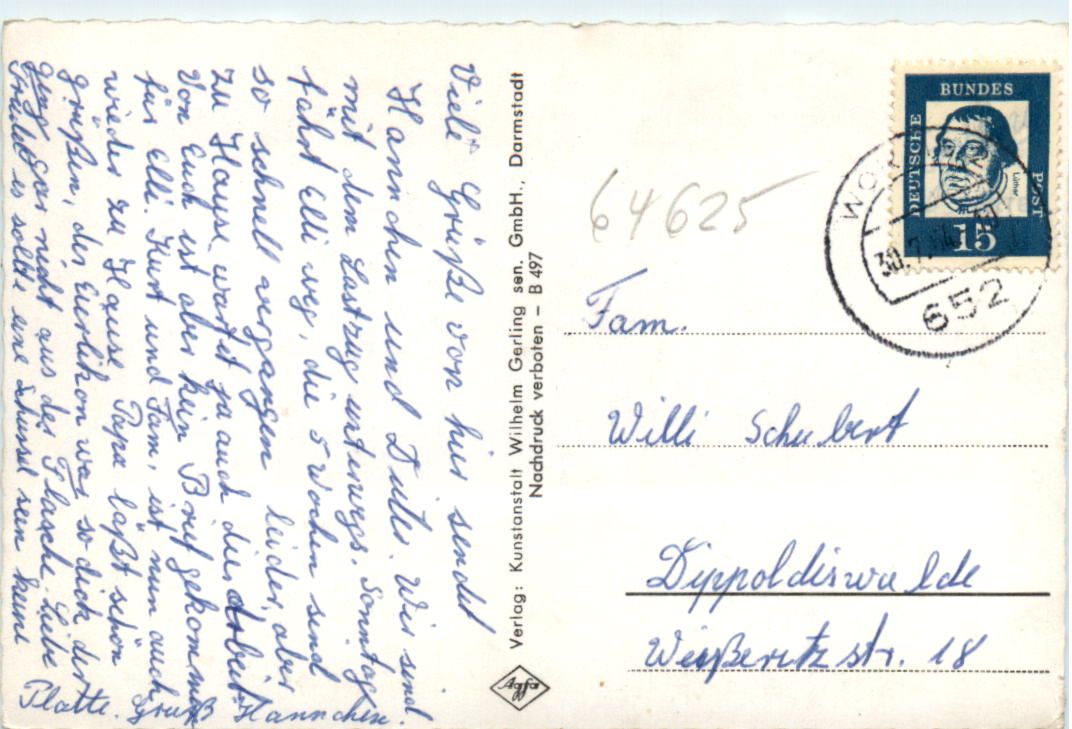 Viele Grüße von hier sendet
Hannchen und Wir sind
mit dem Lastzug unterwegs. Sonntag
fährt Elli weg, die 5 Wochen sind
so schnell vergangen leider, aber
zu Hause wartet ja auch die Arbeit.
Von Euch ist aber kein Brief gekommen
für Elli. Kurt und Fam. ist nun auch
wieder zu Hause. Papa läßt schön
grüßen, der Euerlikon war so dick der
ging gar nicht aus der Flasche. Liebe
es sollte eine sein keine
Platte. Gruß Hannchen.
Verlag: Kunstanstalt Wilhelm Gerling sen. GmbH., Darmstadt
Nachdruck verboten – B 497
Agfa
64625
DEUTSCHE
BUNDES
POST
Luther
15
30.7.
652
Fam.
Willi Schubert
Dippoldiswalde
Weißeritzstr. 18